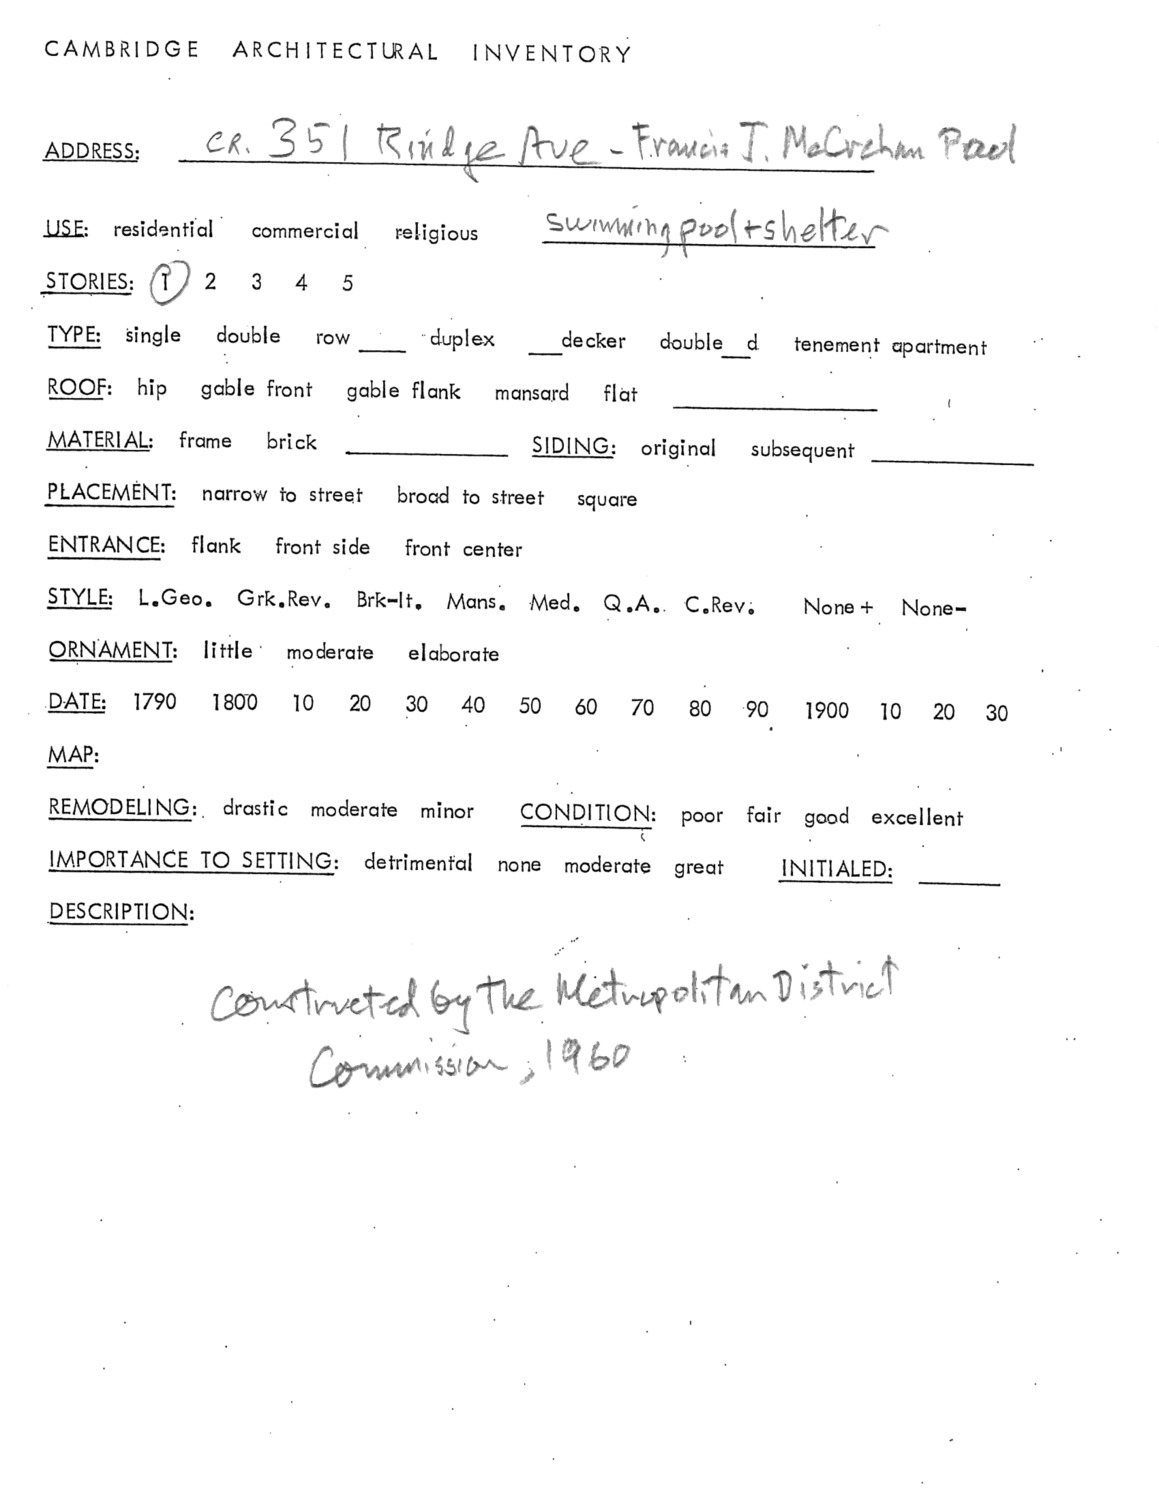 CAMBRIDGE ARCHITECTURAL INVENTORY
ADDRESS: CR. 351 Rindge Ave - Francis J. McCrehan Pool
USE: residential commercial religious swimming pool + shelter
STORIES: 1 2 3 4 5
TYPE: single double row ___ duplex ___decker double__d tenement apartment
ROOF: hip gable front gable flank mansard flat ___
MATERIAL: frame brick ___ SIDING: original subsequent ___
PLACEMENT: narrow to street broad to street square
ENTRANCE: flank front side front center
STYLE: L.Geo. Grk.Rev. Brk-It. Mans. Med. Q.A. C.Rev. None+ None-
ORNAMENT: little moderate elaborate
DATE: 1790 1800 10 20 30 40 50 60 70 80 90 1900 10 20 30
MAP:
REMODELING: drastic moderate minor CONDITION: poor fair good excellent
IMPORTANCE TO SETTING: detrimental none moderate great INITIALED: ___
DESCRIPTION:
Constructed by the Metropolitan District
Commission, 1960